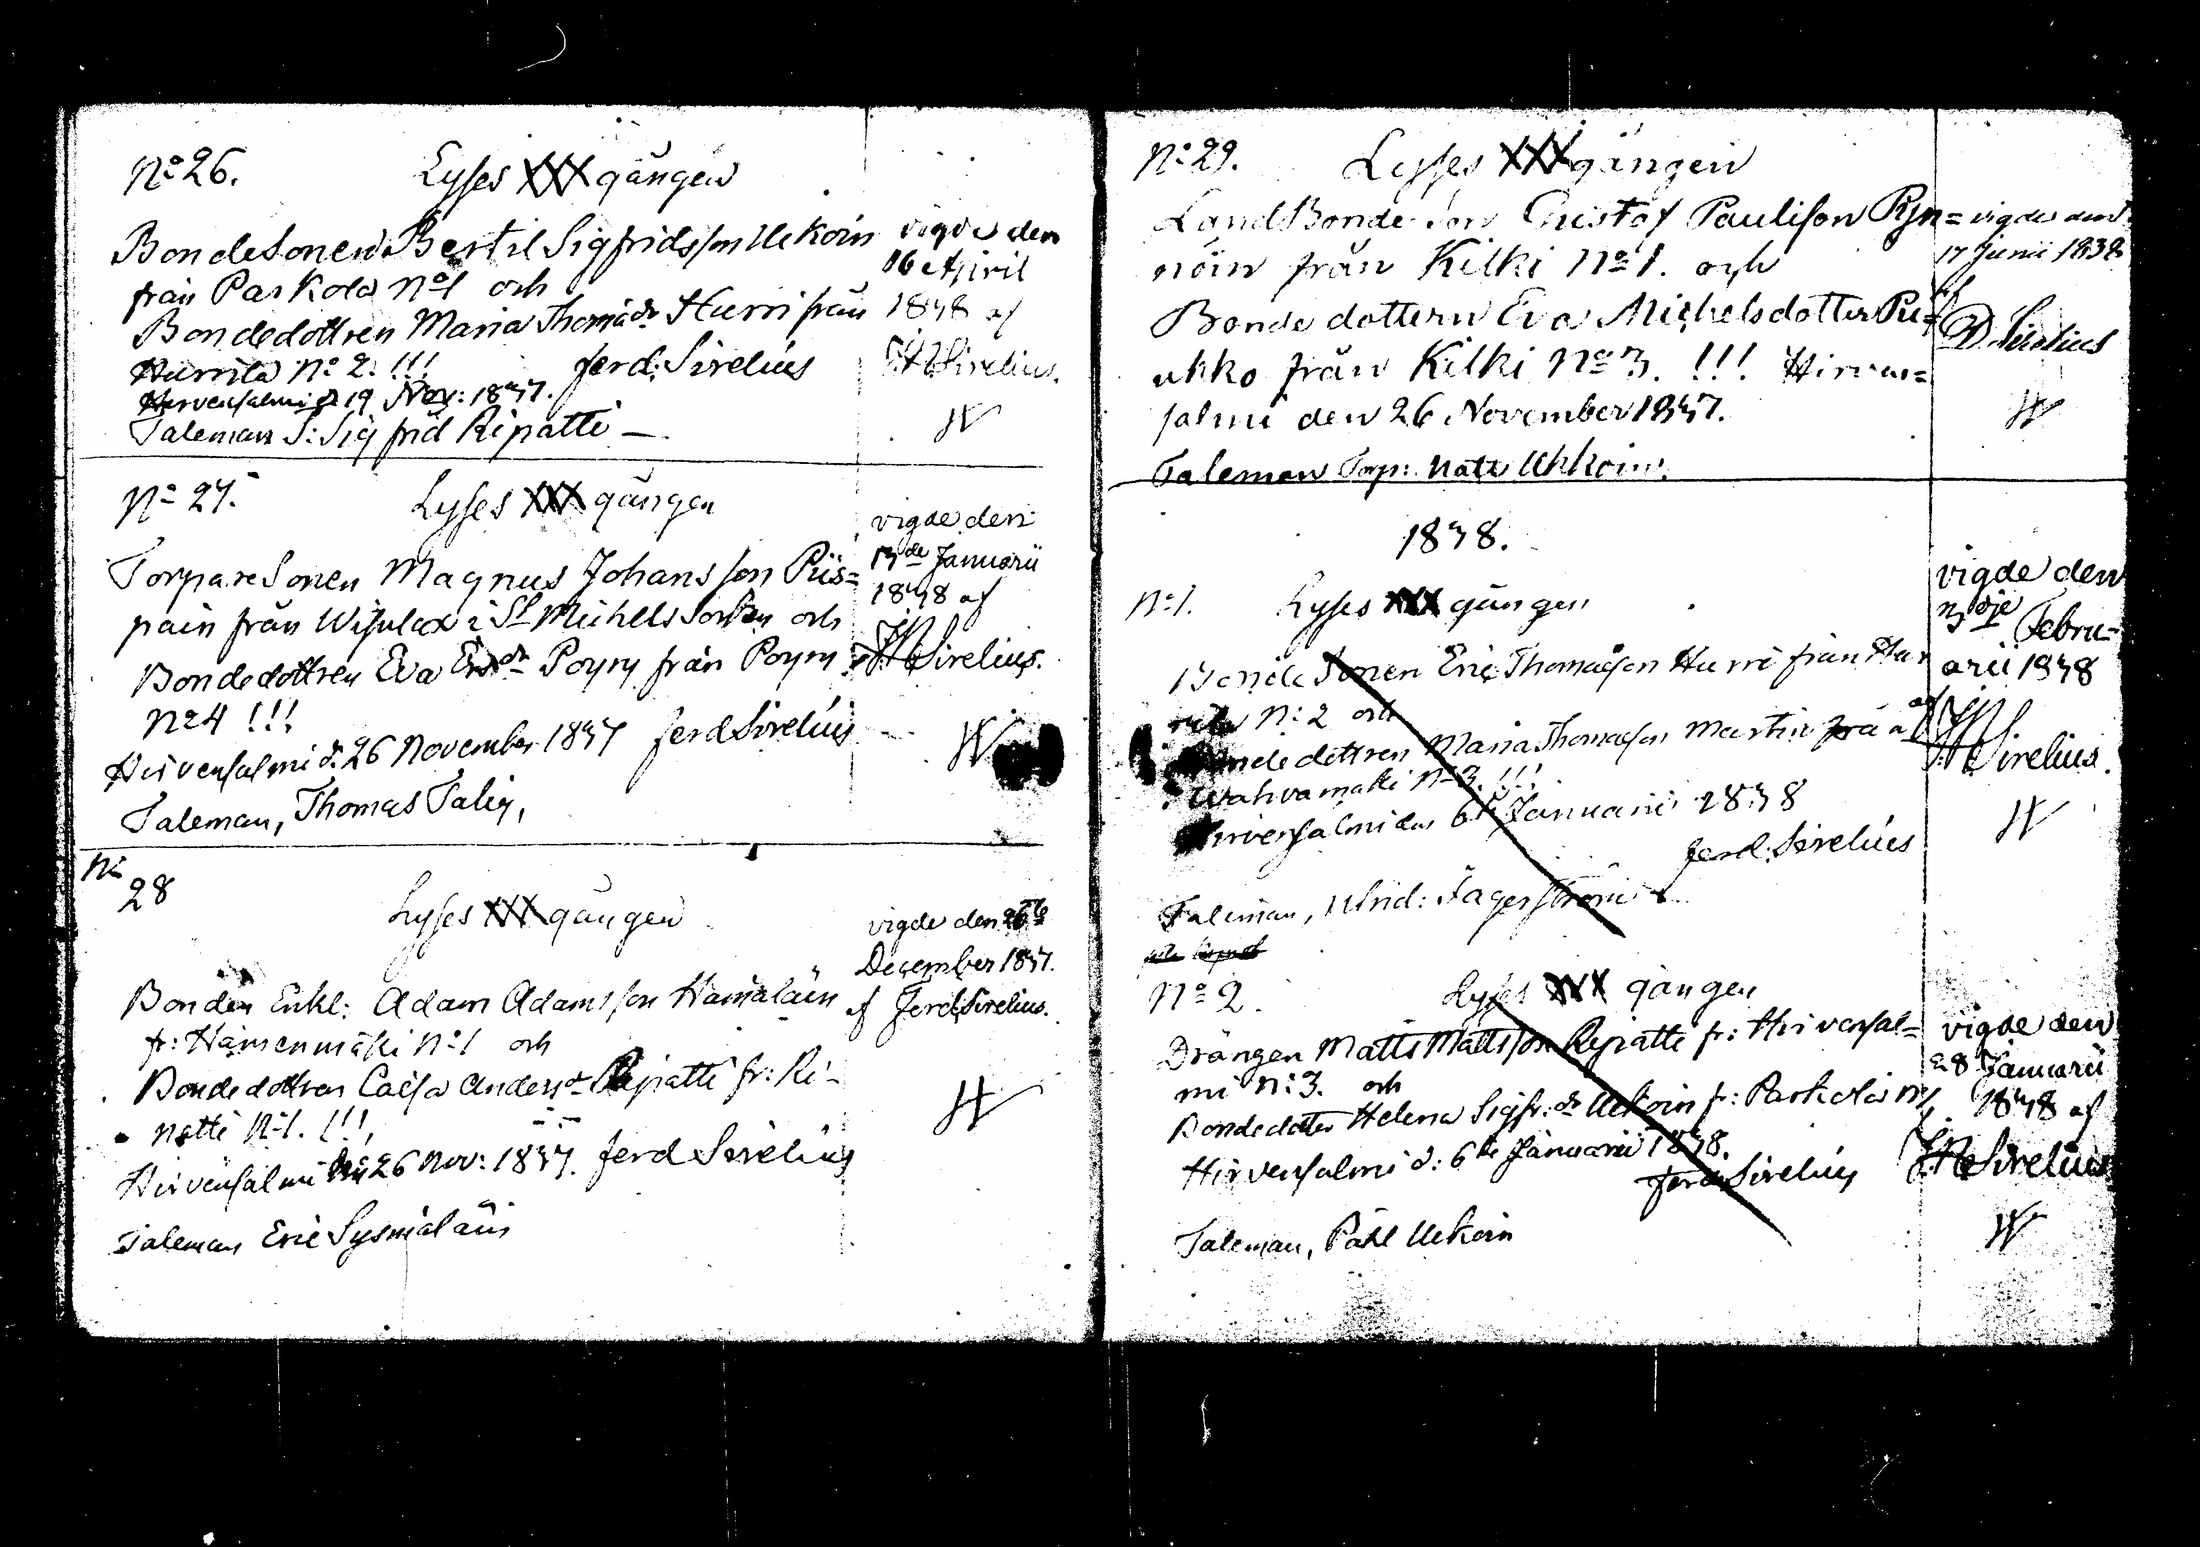 No 26. Lyses XXX gången
Bondesonen Bertil Sigfridsson Uekoin
från Parkola No 1 och
Bondedottren Maria Thomædr Hurri från
Hurrila No 2. !!! Ferd: Sirelius
Hirvensalmi d 19 Nov: 1837.
Taleman S: Sigfrid Ripatti —
vigde den
16 April
1838 af
Sirelius.
No 27. Lyses XXX gången
Torparesonen Magnus Johansson Piis=
pain från Wisulax i St Michels Socken och
Bondedottren Eva Ersdr Poyry från Poyry
No 4 !!!
Hirvensalmi d. 26 November 1837 Ferd Sirelius
Taleman, Thomas Talig,
vigde den
Januarii
1838 af
Sirelius.
No 28
Lyses XXX gången
Bonden Enkl: Adam Adamsson Hämäläin
fr: Hämenmäki No 1 och
Bondedottren Caisa Andersdr Ripatti fr: Ri-
patti No 1. !!!
Hirvensalmi 26 Nov: 1837. Ferd Sirelius
Taleman Eric Sysmäläin
vigde den 26te
December 1837.
af Ferd Sirelius.
No 29. Lyses XXX gången
LandBonde Son Gustof Paulison Ryn=
nöin från Kilki No 1. och
Bonde dottern Eva Michelsdotter Pu=
ukko från Kilki No 3. !!! Hirven=
salmi den 26 November 1837.
Taleman Torp: Matts Ukkoin.
vigde den
17 Junii 1838
af
Sirelius
1838.
No 1. Lyses XXX gången
Bonde Sonen Eric Thomasson Hurri från Hur
rila No 2 och
Bondedottren Maria Thomasson Martin från
Wahvamäki No 3. !!!
Hirvensalmi den 6te Januarii 1838
Ferd: Sirelius
Taleman, Jagerström
vigde den
3dje Febru-
arii 1838
af
Sirelius.
No 2. Lyses XXX gången
Drängen Matts Mattsson Ripatti fr: Hirvensal=
mi No 3. och
Bondedotter Helena Sigfr: dr Uekoin fr: Parkola No 1
Hirvensalmi d: 6te Januarii 1838.
Ferd Sirelius
Taleman, Påhl Uekoin
vigde den
28 Januarii
1838 af
Sirelius